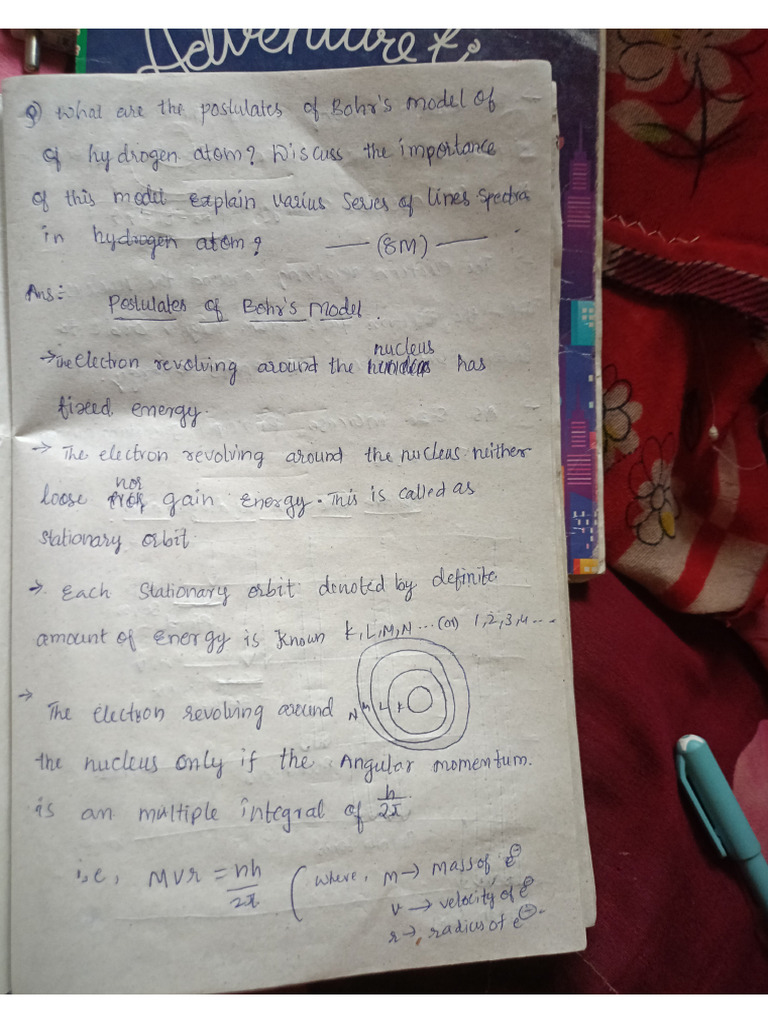 Adventure
Q) What are the postulates of Bohr's model of
of hydrogen atom? Discuss the importance
of this model Explain varius series of lines spectra
in hydrogen atom? — (8M) —
Ans:-
Postulates of Bohr's Model.
→ The electron revolving around the nucleus has
fixed energy.
→ The electron revolving around the nucleus neither
loose nor gain energy. This is called as
stationary orbit.
→ Each stationary orbit denoted by definite
amount of energy is known K, L, M, N ... (or) 1, 2, 3, 4 ...
→ The electron revolving around
N M L K
the nucleus only if the Angular momentum.
is an multiple integral of h/2π
i,e, mvr = nh/2π (where, m → Mass of e⊖
v → velocity of e⊖
r → radius of e⊖.